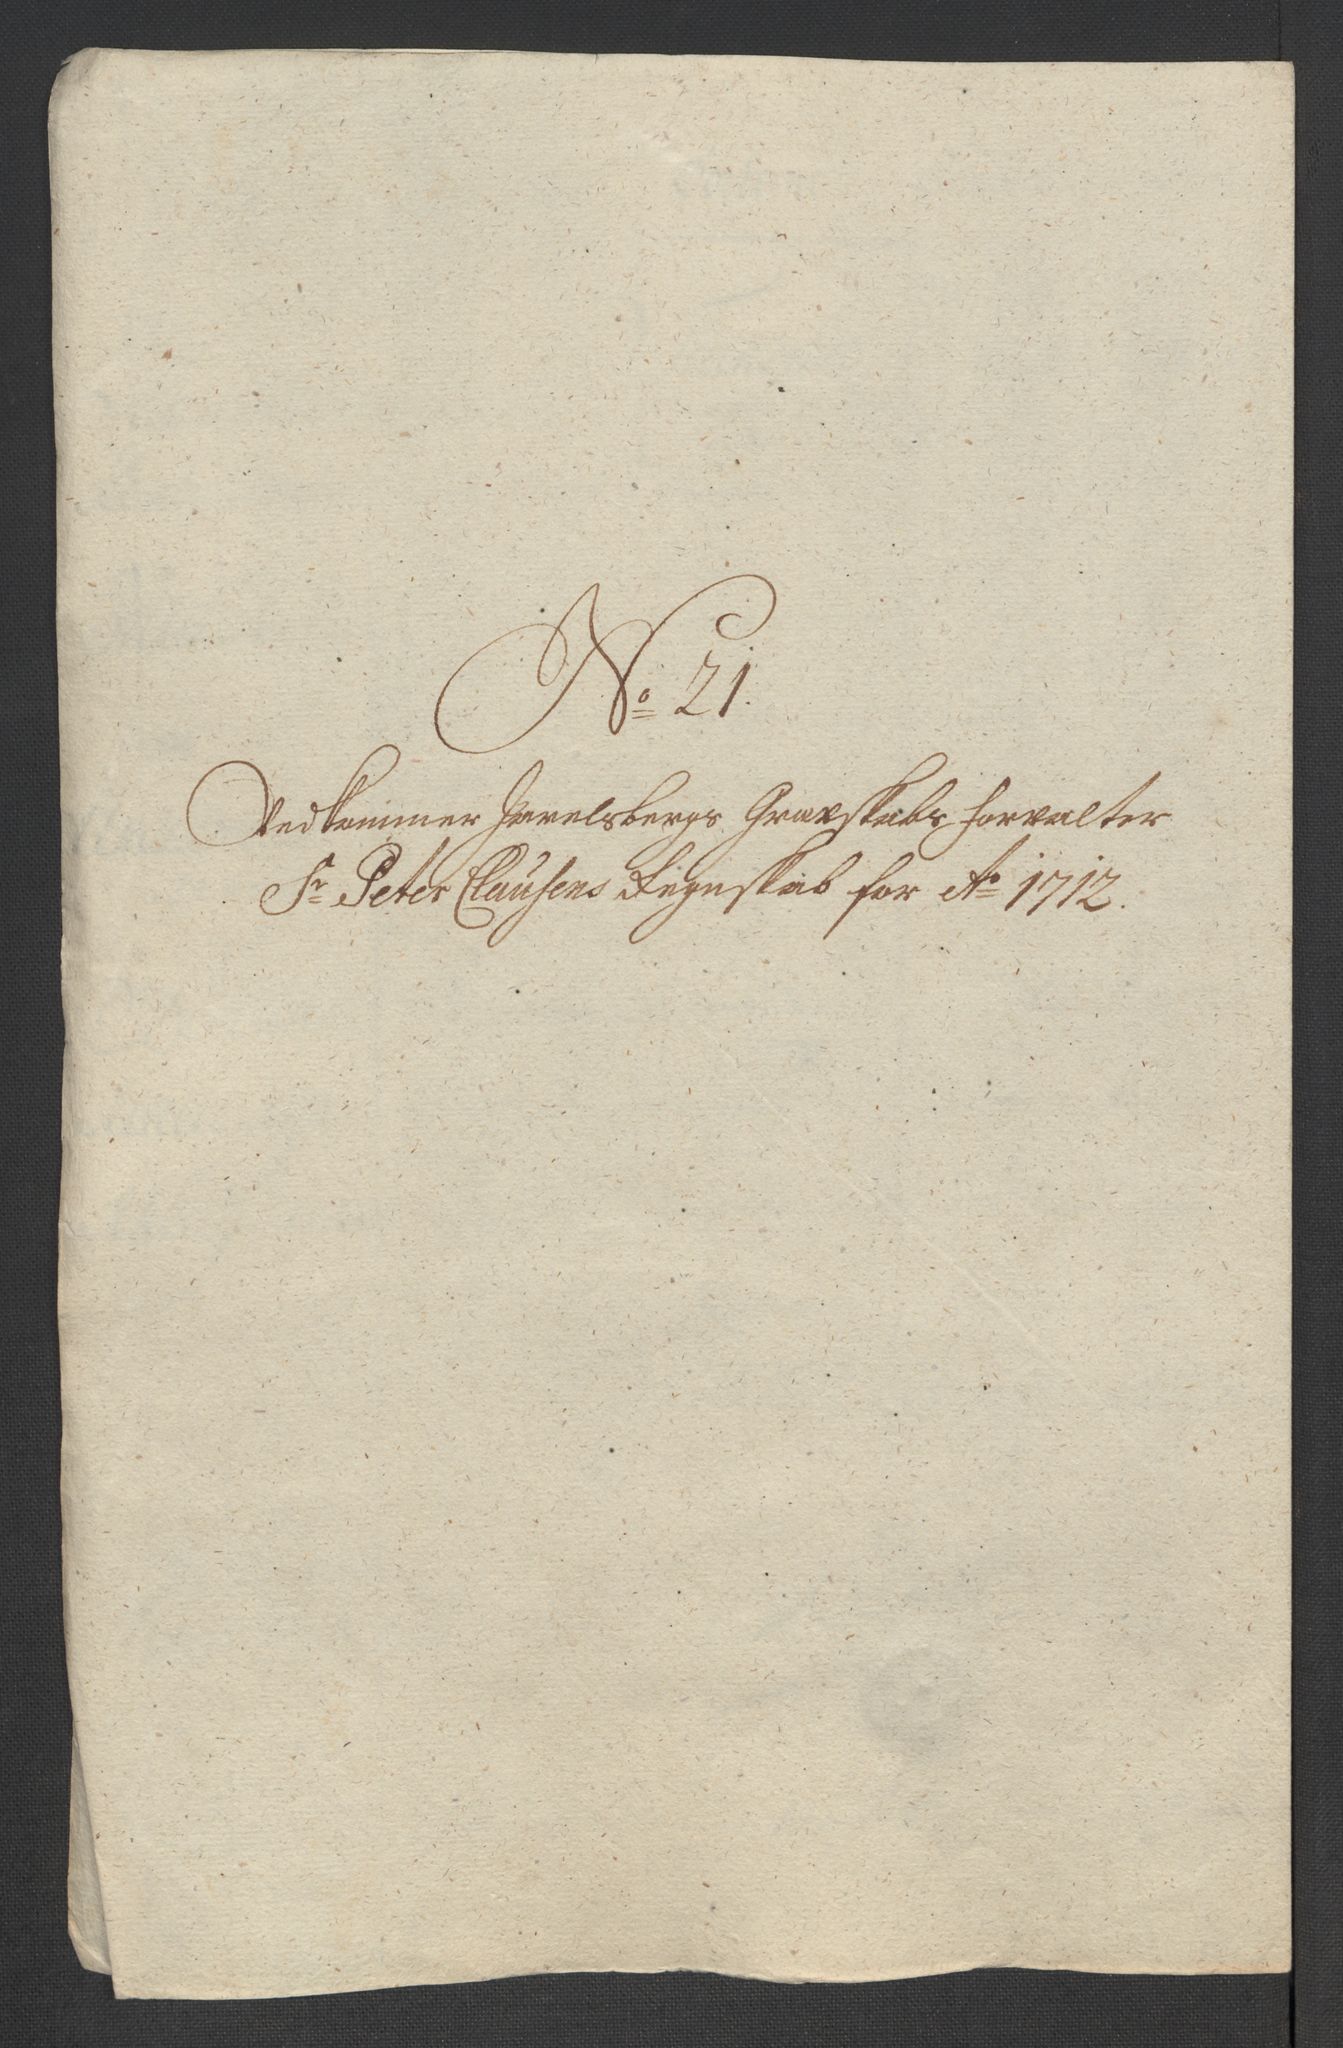 No 21.
Vedkommer Jarelsbergs Gravskabs forvalter
Sr Peter Clausens Regnskab for Ao 1712.